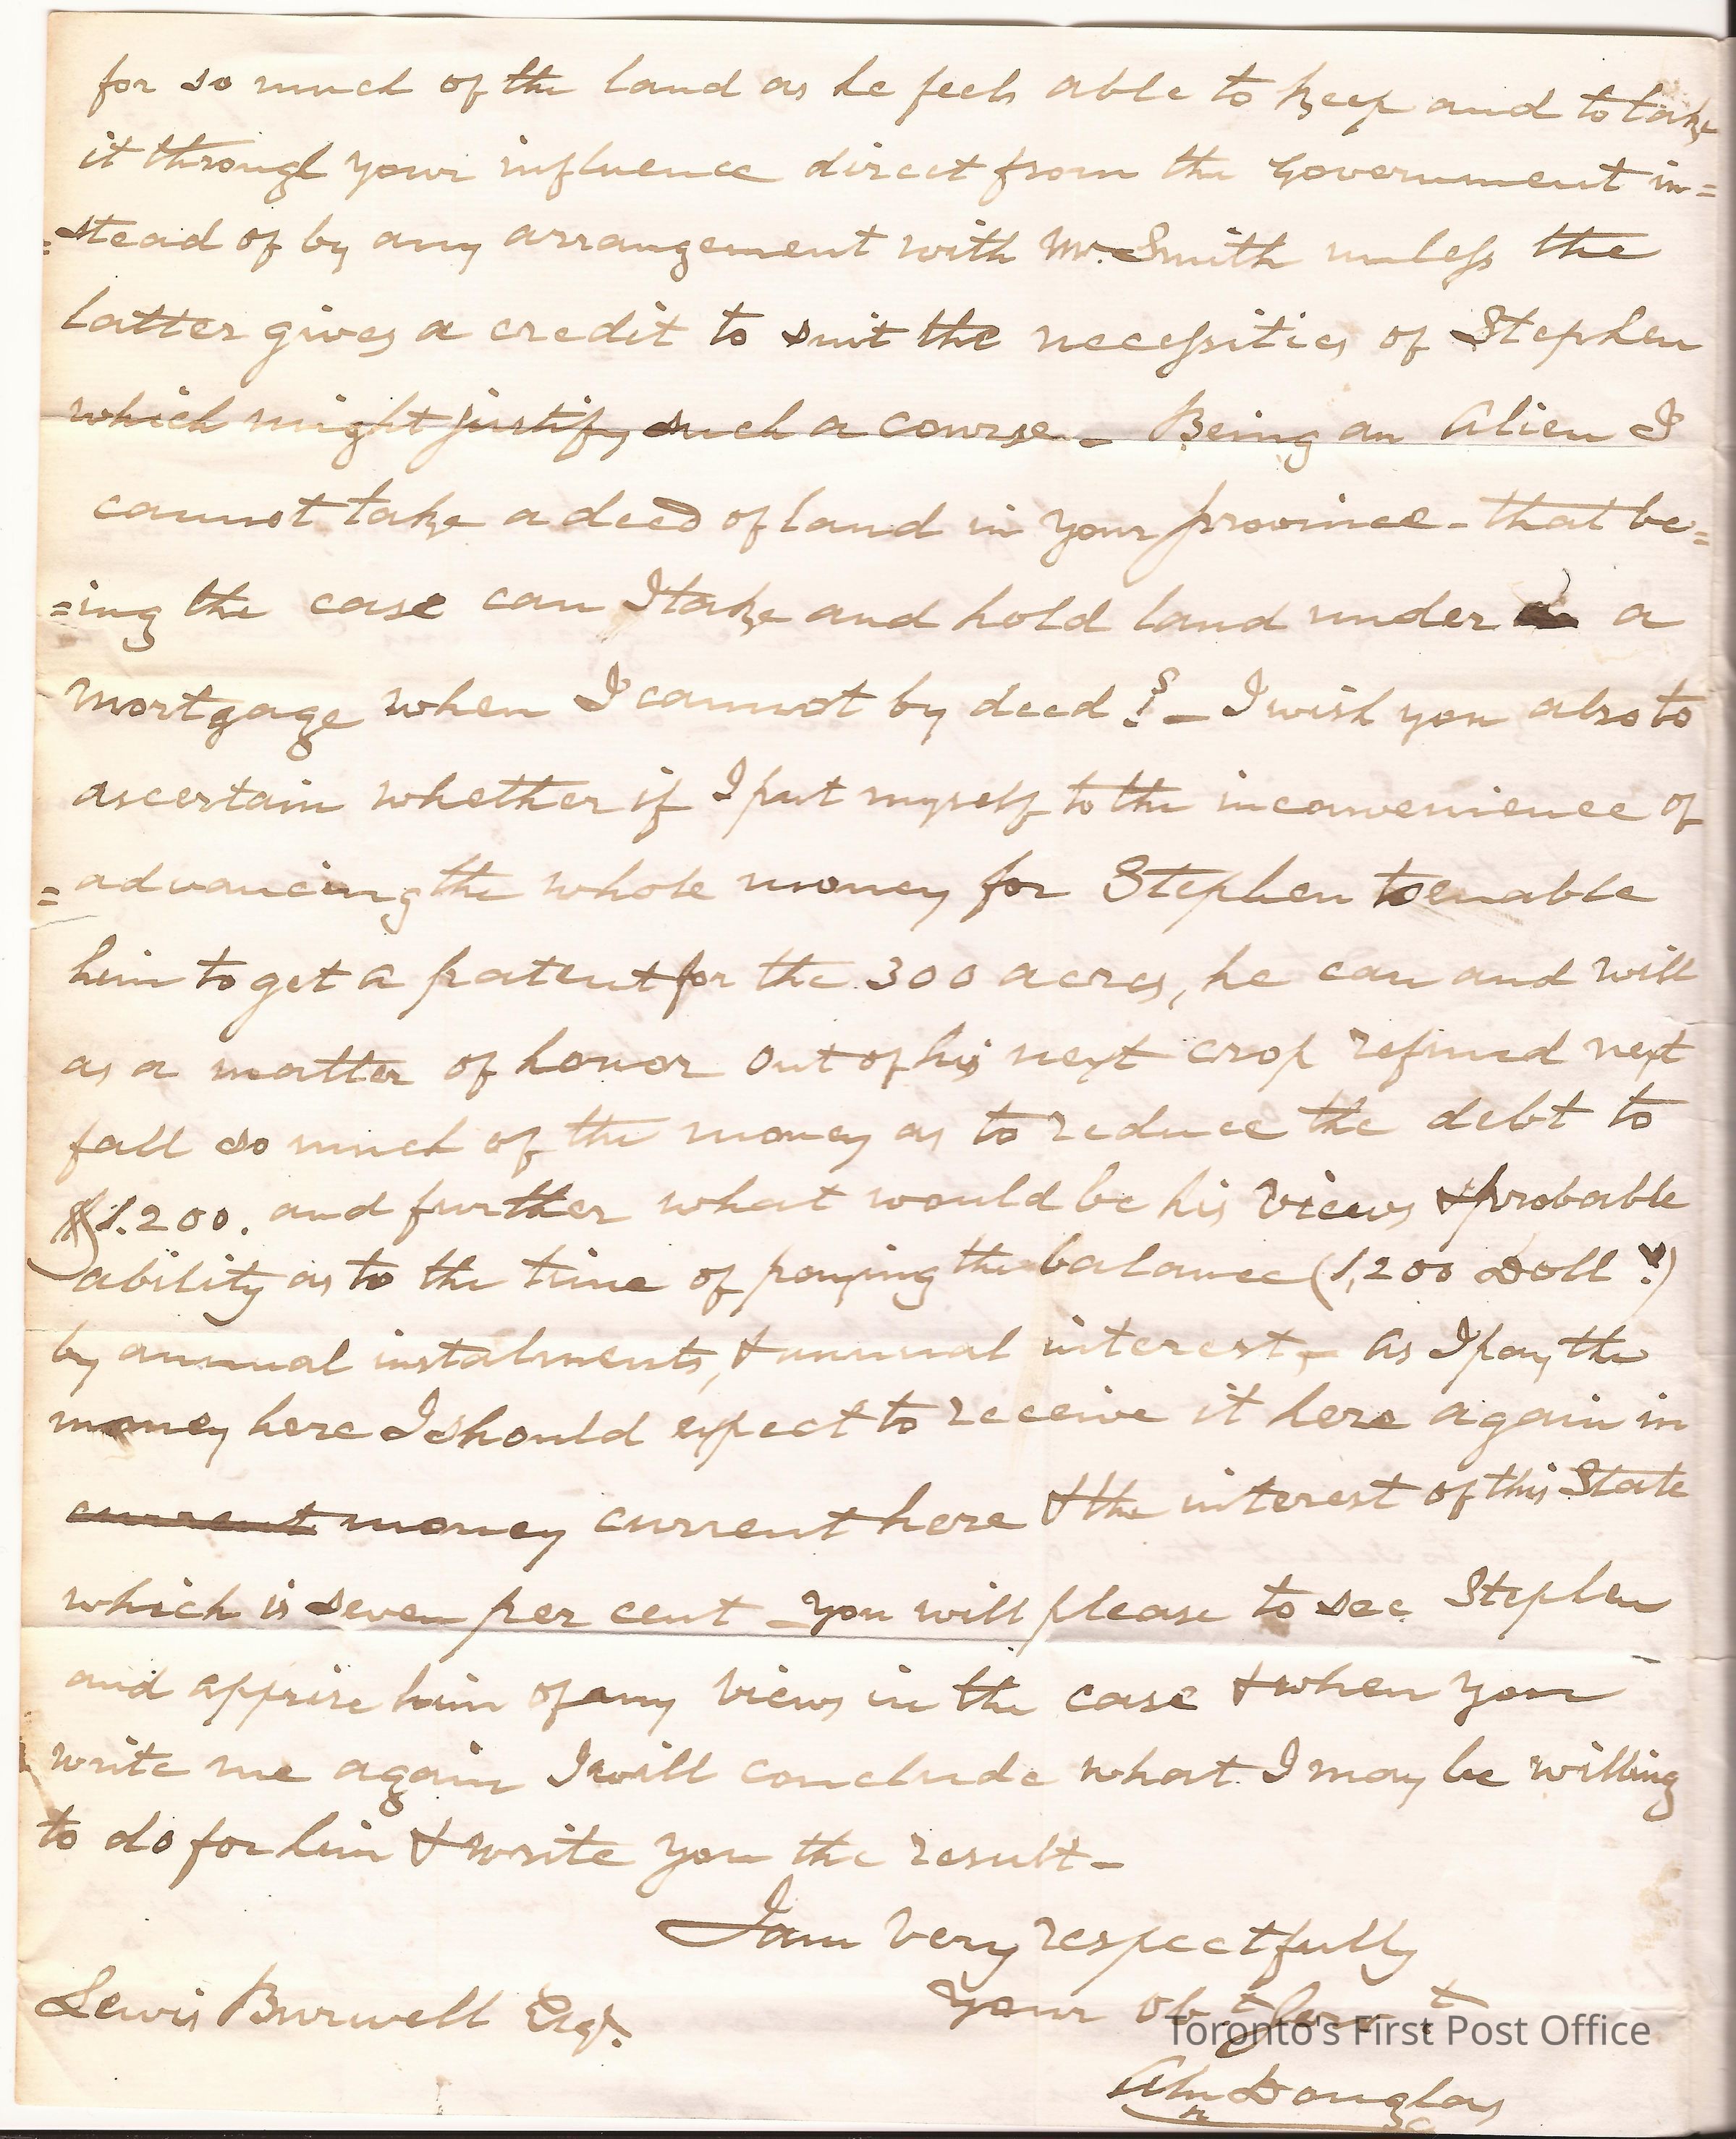 for so much of the land as he feels able to keep and to take
it through your influence direct from the Government in=
=stead of by any arrangement with Mr. Smith unless the
latter gives a credit to suit the necessities of Stephen
which might justify such a course – Being an Alien I
cannot take a deed of land in your province – that be=
=ing the case can I take and hold land under a
mortgage when I cannot by deed? – I wish you also to
ascertain whether if I put myself to the inconvenience of
=advancing the whole money for Stephen to enable
him to get a patent for the 300 acres, he can and will
as a matter of honor out of his next crop refund next
fall so much of the money as to reduce the debt to
$1.200. and further what would be his views & probable
ability as to the time of paying the balance (1,200 Dollrs)
by annual instalments, & annual interest, – As I pay the
money here I should expect to receive it here again in
current money current here & the interest of this State
which is seven per cent – you will please to see Stephen
and apprise him of my views in the case & when you
write me again I will conclude what I may be willing
to do for him & write you the result –
I am very respectfully
Your obt Servt
Lewis Burwell Esqr.
Toronto's First Post Office
Douglas